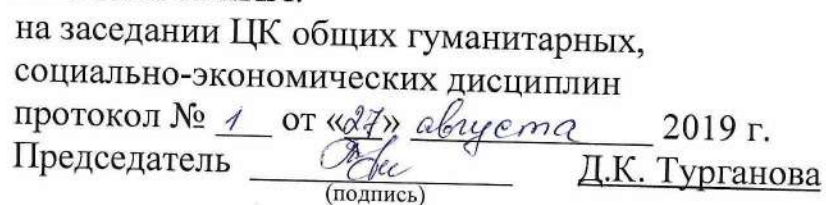 на заседании ЦК общих гуманитарных,
социально-экономических дисциплин
протокол № 1 от «27» августа 2019 г.
Председатель Д.К. Турганова
(подпись)